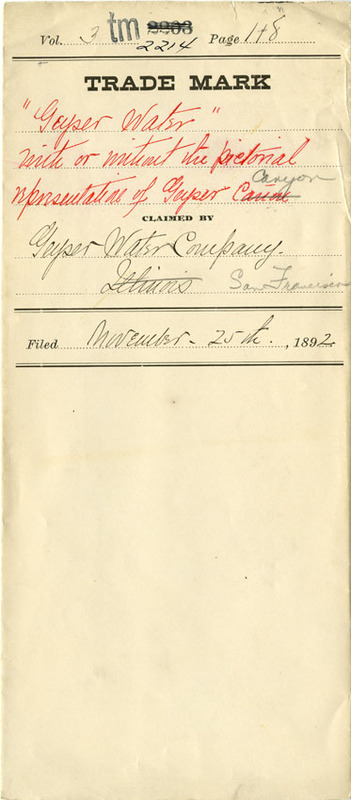 Vol. 3 tm 2203 Page 148
2214
TRADE MARK
"Geyser Water"
with or without the pictorial
Canyon
representation of Geyser Cañon
CLAIMED BY
Geyser Water Company.
Illinois San Francisco
Filed November 25th, 1892